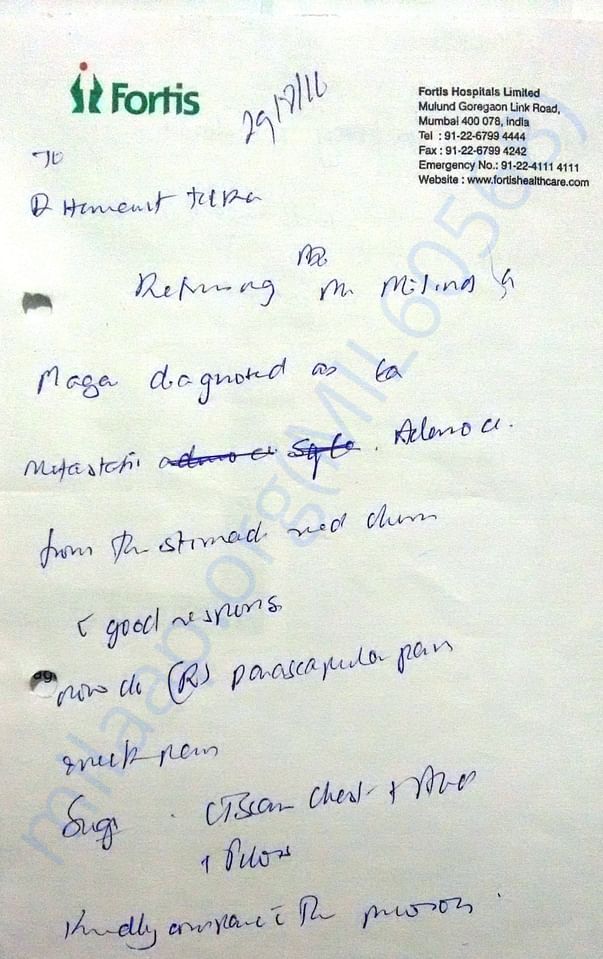 Fortis
29/8/16
Fortis Hospitals Limited
Mulund Goregaon Link Road,
Mumbai 400 078, India
Tel : 91-22-6799 4444
Fax : 91-22-6799 4242
Emergency No.: 91-22-4111 4111
Website : www.fortishealthcare.com
To
Dr Hemant
Referring Mr Milind
diagnosed as Ca
Metastatic adeno ca Sq Ca. Adeno ca.
from the stomach recd chemo
c̄ good response
now c/o (R) parascapular pain
& neck pain
Sugg. CT Scan Chest + Abd
+ Pelvis
Kindly compare c̄ the previous.
milaap.org(MIL_60566)